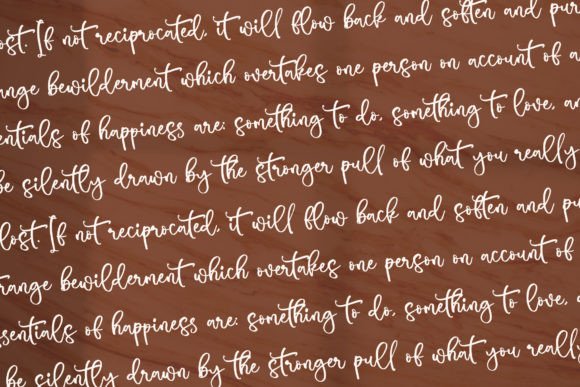 lost. If not reciprocated, it will flow back and soften and pur
range bewilderment which overtakes one person on account of a
entials of happiness are: something to do, something to love, an
be silently drawn by the stronger pull of what you really
lost. If not reciprocated, it will flow back and soften and pu
range bewilderment which overtakes one person on account of
ssentials of happiness are: something to do, something to love,
be silently drawn by the stronger pull of what you reall